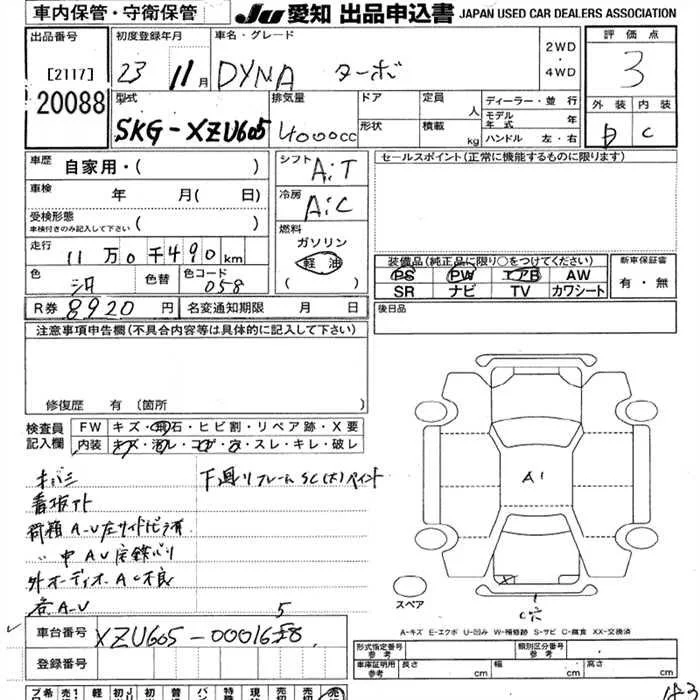 車内保管・守衛保管
JU 愛知 出品申込書 JAPAN USED CAR DEALERS ASSOCIATION
出品番号
[2117]
20088
初度登録年月
23 11月
車名・グレード
DYNA ターボ
2WD
・
4WD
評価点
3
外装 内装
C
型式
SKG-XZU605
排気量
4000cc
ドア
形状
定員 人
積載 kg
ディーラー・並 行
モデル年式 年
ハンドル 左・右
車歴
自家用・(
車検 年 月( 日)
受検形態
車検付きのみ記入して下さい
走行
11万0千490km
色 色替 色コード
058
シフト
A:T
冷房
A:C
燃料
ガソリン
軽油
( )
セールスポイント(正常に機能するものに限ります)
装備品(純正品に限り○をつけてください)
PS PW エアB AW
SR ナビ TV カワシート
新車保証書
有・無
R券 8920円 名変通知期限 月 日
後日品
注意事項申告欄(不具合内容等は具体的に記入して下さい)
修復歴 有 (箇所
検査員
記入欄
FW キズ・飛石・ヒビ割・リペア跡・X要
内装 キズ・汚レ・コゲ・穴・スレ・キレ・破レ
キバミ
下廻リフレームSC(大)ペイント
看板アト
荷箱A-U左サイド
〃 中AU
外オーディオ AC不良
A-U
5
A1
C穴
スペア
A-キズ E-エクボ U-凹み W-補修跡 S-サビ C-腐食 XX-交換済
車台番号
XZU605-00016
登録番号
形式指定番号
参考
類別区分番号
参考
車庫証明用
参考
長さ cm 幅 cm 高さ cm